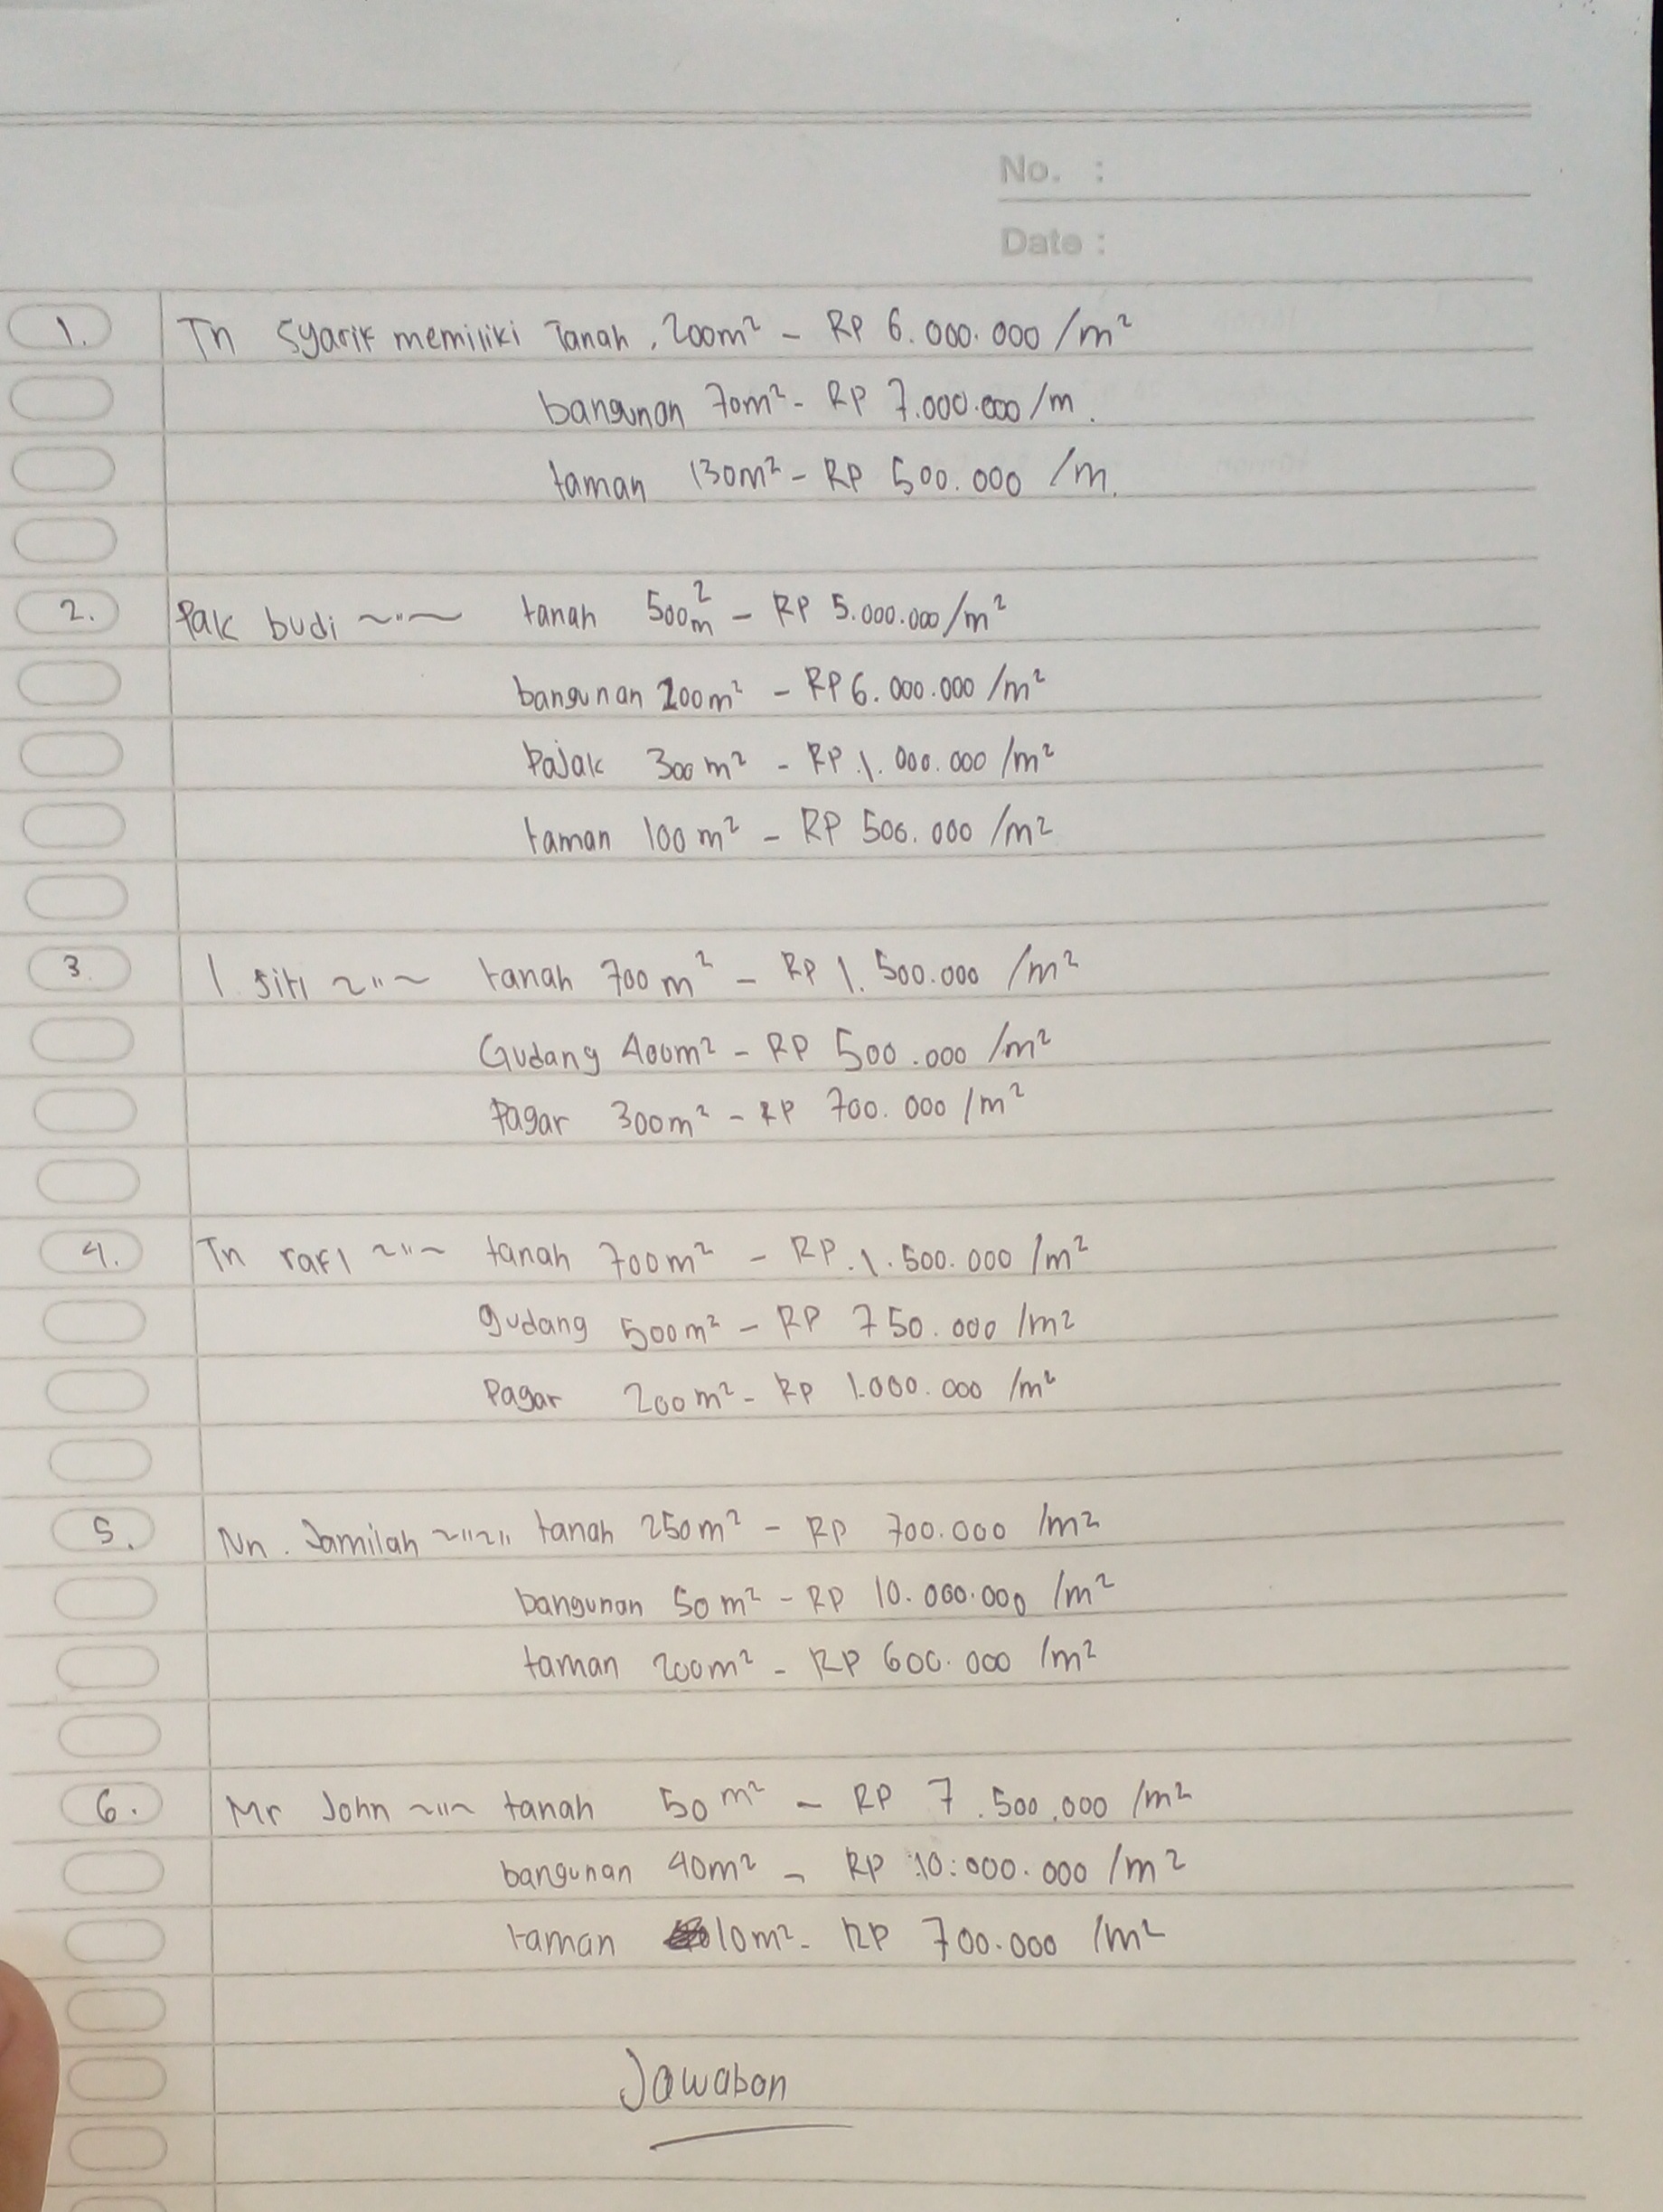 No. :
Date :
1. Tn Syarif memiliki Tanah, 200m² - RP 6.000.000 /m²
bangunan 70m² - RP 7.000.000 /m.
taman 130m² - RP 500.000 /m.
2. Pak budi ~"~ tanah 500m² - RP 5.000.000/m²
bangunan 200m² - RP 6.000.000 /m²
Pajak 300 m² - RP.1.000.000 /m²
taman 100 m² - RP 500.000 /m²
3. I. siti ~"~ tanah 700 m² - RP 1.500.000 /m²
Gudang 400m² - RP 500.000 /m²
Pagar 300m² - RP 700.000 /m²
4. Tn rafi ~"~ tanah 700m² - RP.1.500.000 /m²
gudang 500m² - RP 750.000 /m²
Pagar 200m² - RP 1.000.000 /m²
5. Nn. Jamilah ~"~" tanah 250m² - RP 700.000 /m²
bangunan 50 m² - RP 10.000.000 /m²
taman 200m² - RP 600.000 /m²
6. Mr John ~"~ tanah 50 m² - RP 7.500.000 /m²
bangunan 40m² - RP 10.000.000 /m²
taman 10m² - RP 700.000 /m²
Jawaban